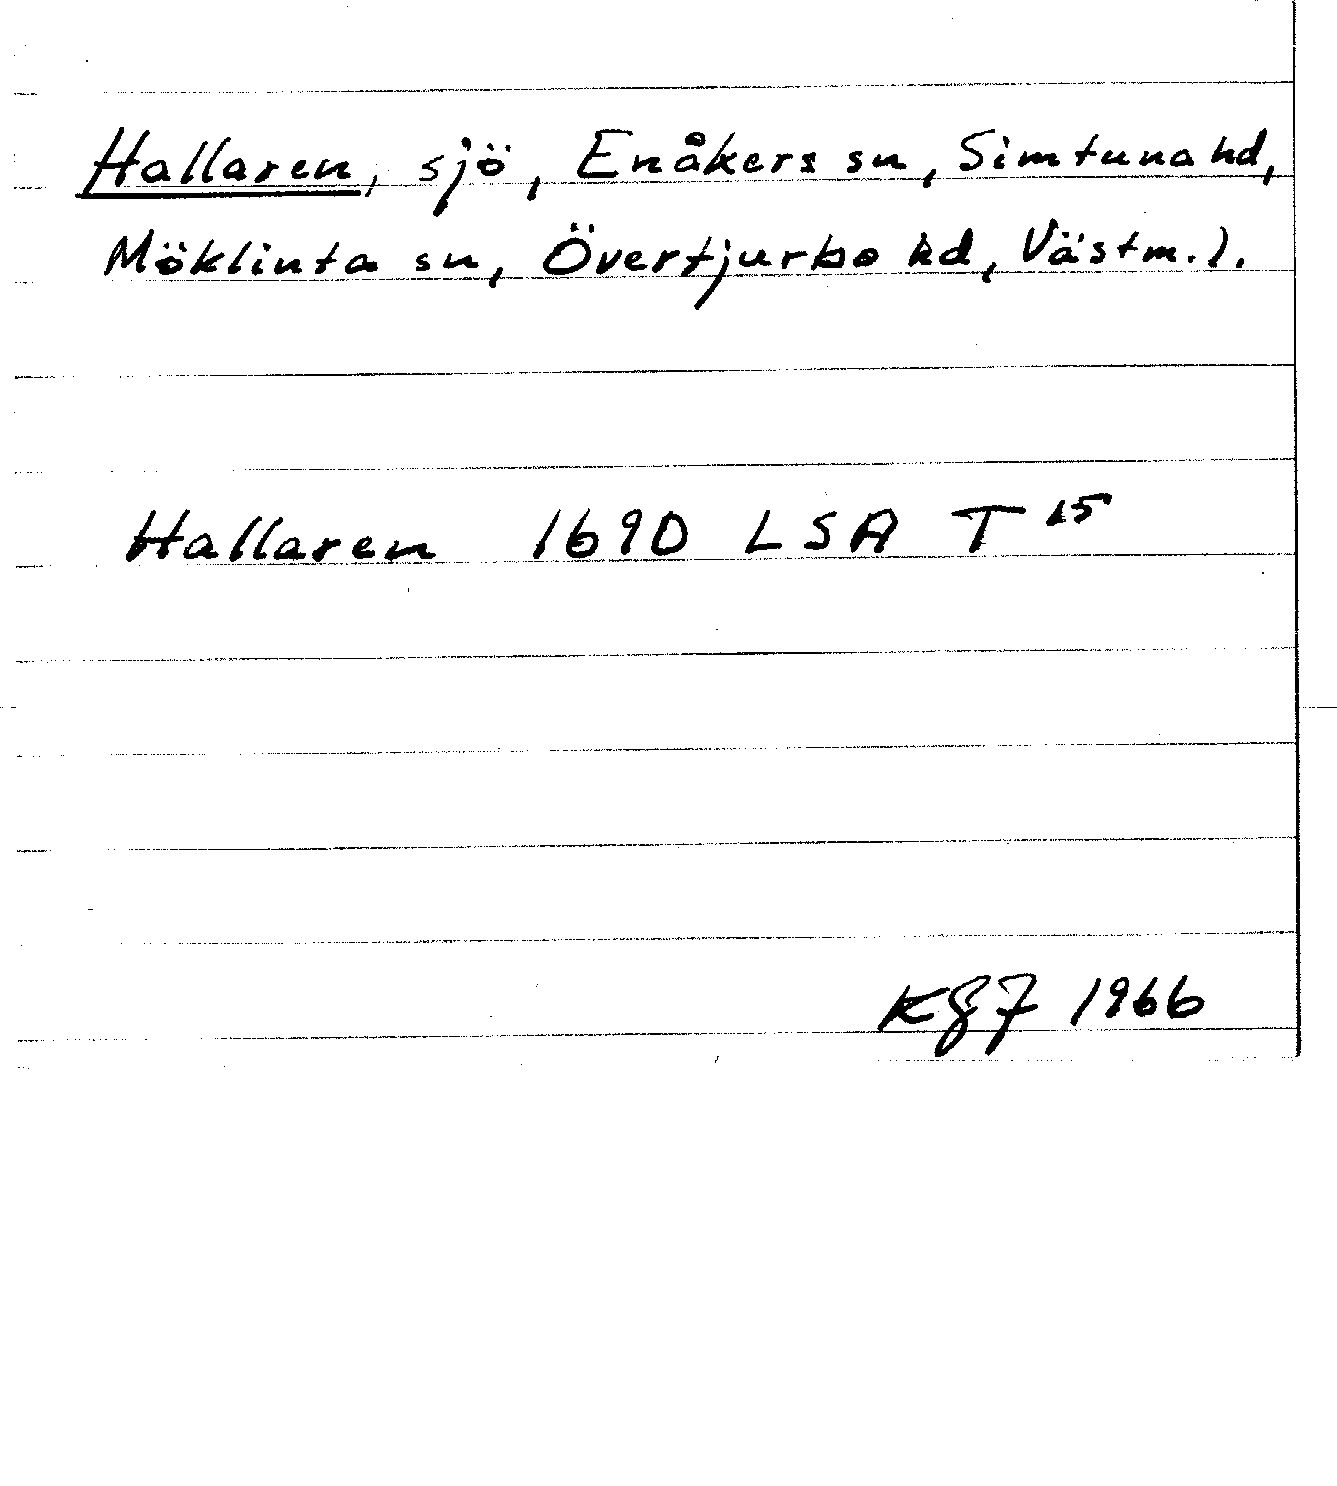 Hallaren, sjö, Enåkers sn, Simtuna hd,
Möklinta sn, Övertjurbo hd, Västm.l.
Hallaren 1690 LSA T 15
1966